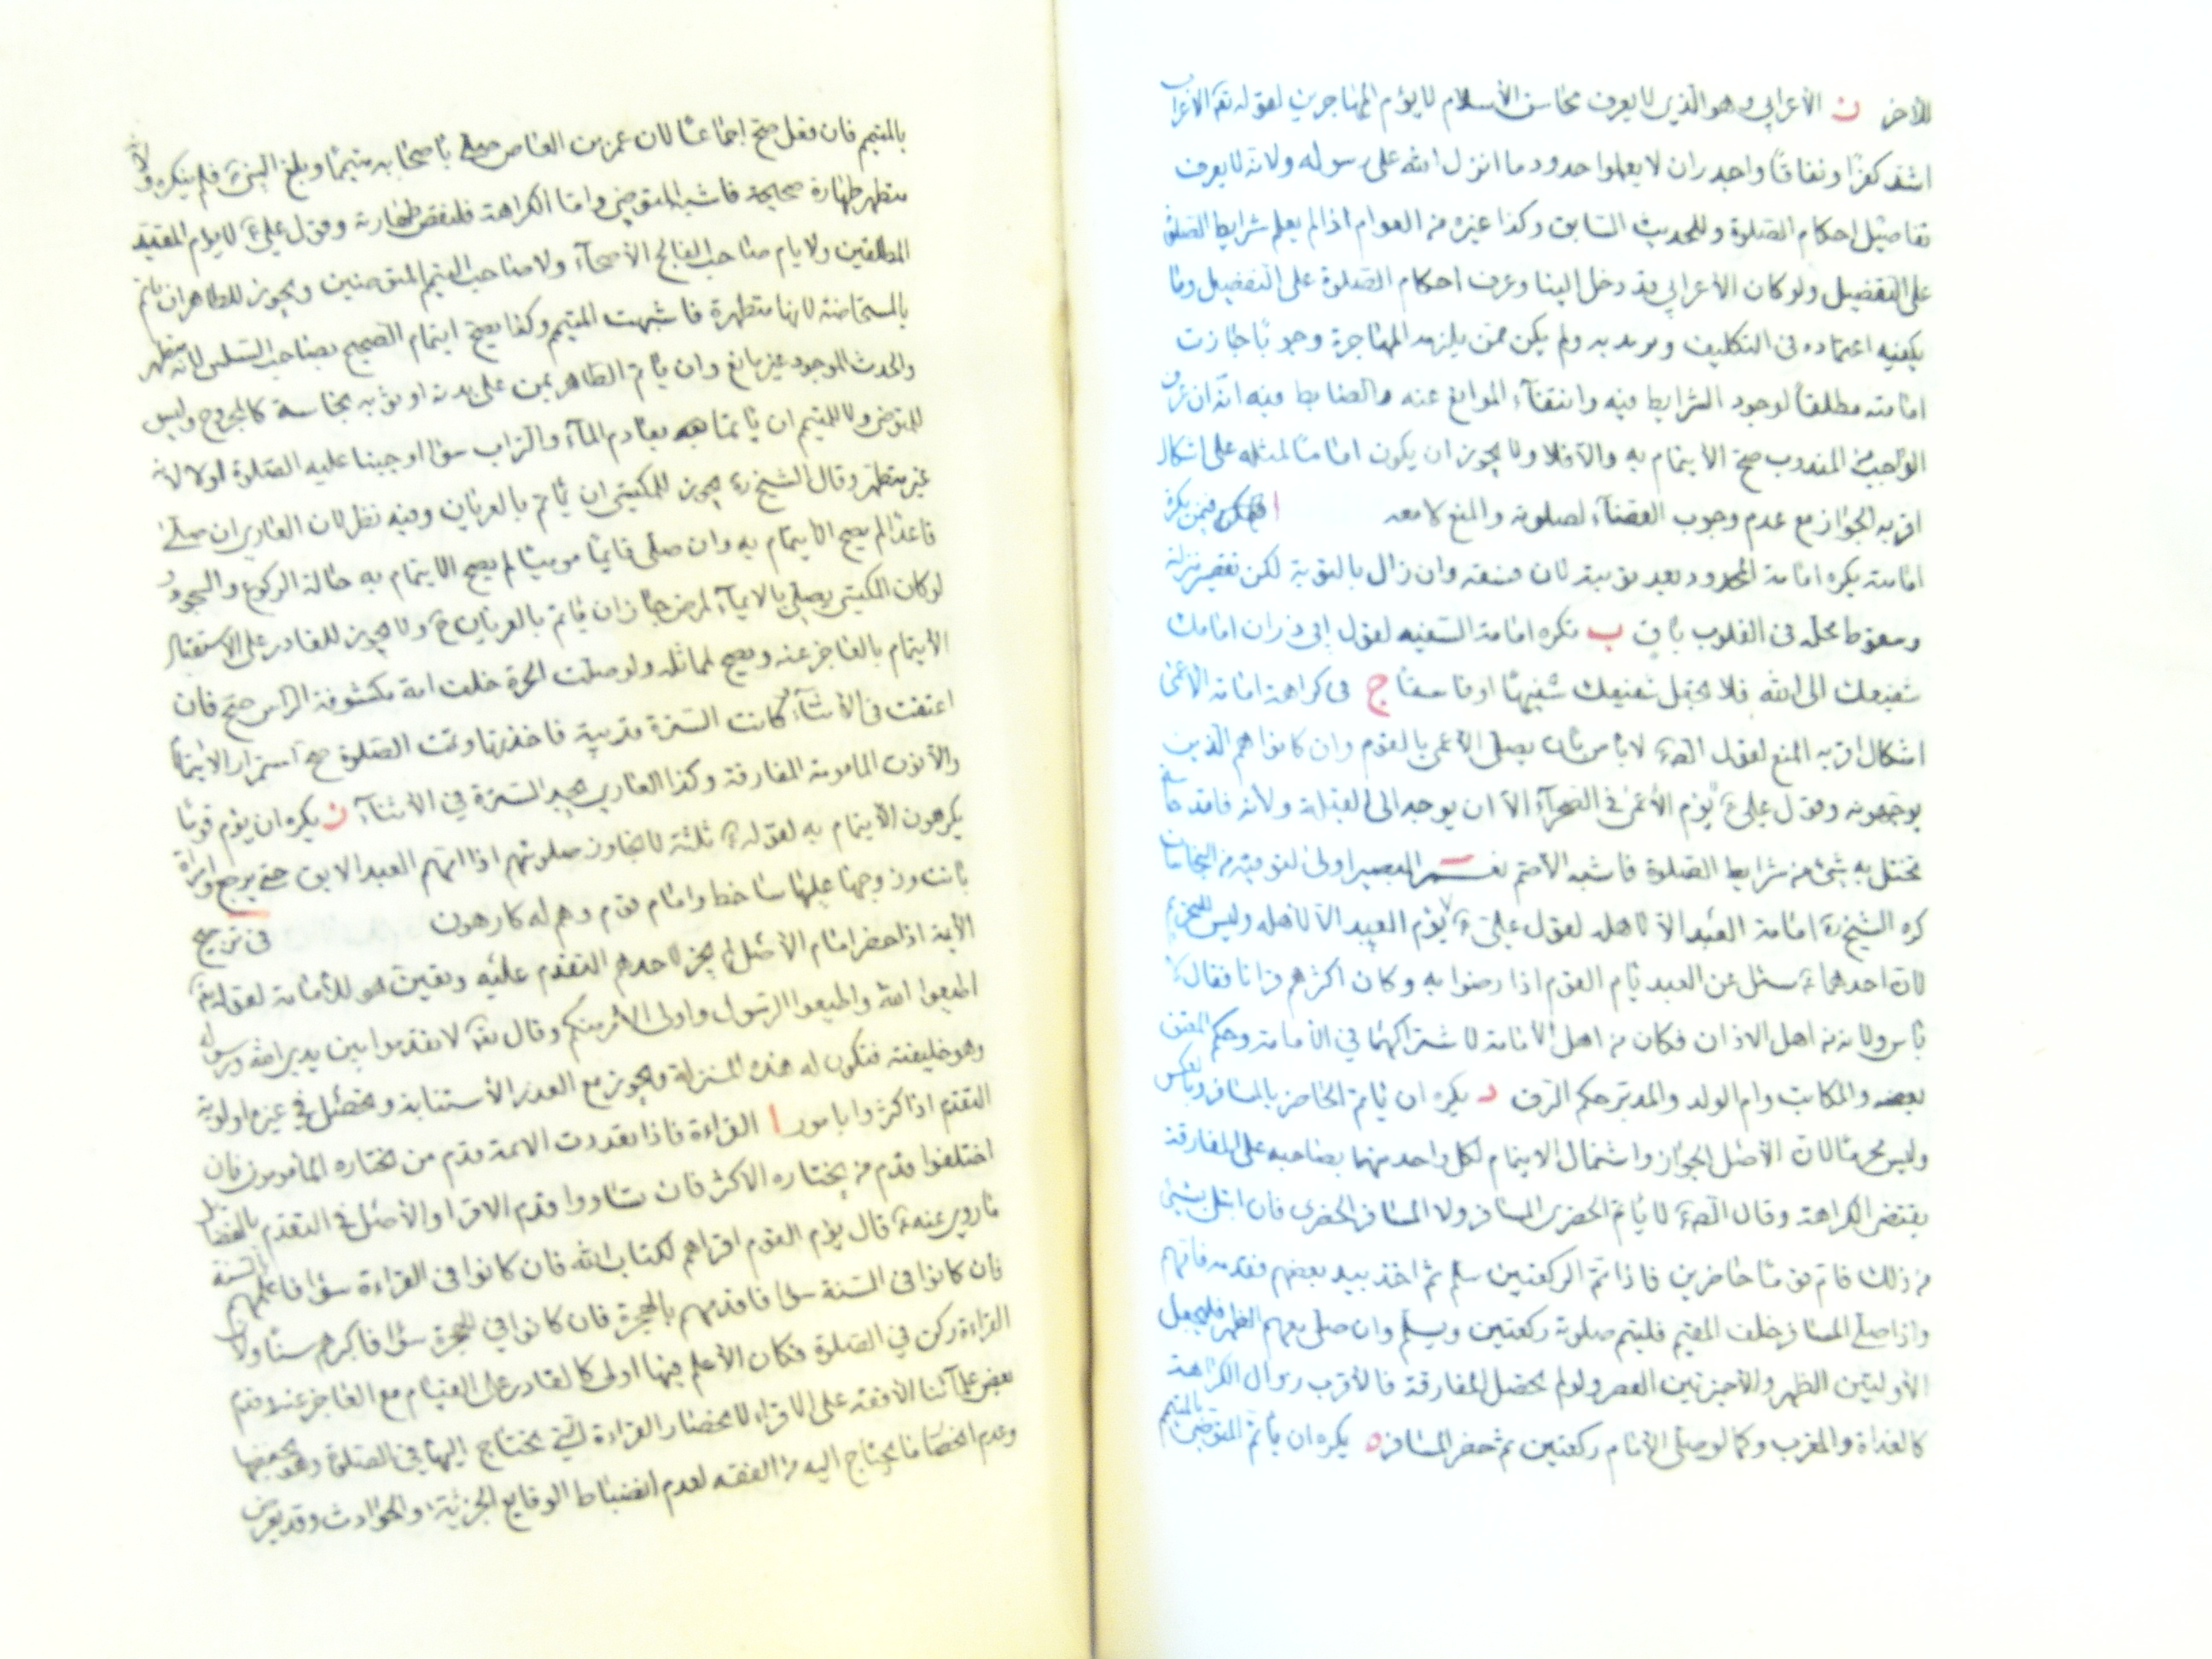 للآخر ن الأعرابي وهو الذي لا يعرف محاسن الأسلام لا يؤم المهاجرين لقوله تعالى الأعراب
اشد كفرا ونفاقا واجدر ان لا يعلموا حدود ما انزل الله على رسوله ولانه لا يعرف
تفاصيل احكام الصلوة وللحديث السابق وكذا غيره من العوام اذا لم يعلم شرايط الصلوة
على التفصيل ولو كان الأعرابي قد دخل الينا وعرف احكام الصلوة على التفصيل وما
يكفيه اعتماده في التكليف ويدين به ولم يكن ممن يلزمه المهاجرة وجوبا جازت
امامته مطلقا لوجود الشرايط فيه وانتفاء الموانع عنه والضابط فيه انه ان عرف
الواجب من المندوب صح الأيتمام به والا فلا ولا يجوز ان يكون اماما لمثله على اشكال
اقربه الجواز مع عدم وجوب القضاء لصلوته والمنع لا معه فيمن يكره
امامته يكره امامة المحدود بعد توبته لان فسقه وان زال بالتوبة لكن نقص منزلته
وسقوط محله في القلوب باق ب تكره امامة السفيه لقول ابي ذر ان امامك
شفيعك الى الله فلا تجعل شفيعك سفيها او فاسقا ج في كراهة امامة الأعمى
اشكال اقربه المنع لقول الص لا باس بان يصلي الأعمى بالقوم وان كانوا هم الذين
يوجهونه وقول علي لا يؤم الأعمى في الصحراء الا ان يوجه الى القبلة ولأنه فاقد حاسة
تختل به شيء من شرايط الصلوة فاشبه الأصم نعم البصير اولى لتوقيه من النجاسات
كره الشيخ ره امامة العبد الا لأهله لقول علي لا يؤم العبد الا لأهله وليس للتحريم
لان احدهما سئل عن العبد يام القوم اذا رضوا به وكان اكثرهم قرانا فقال لا
باس ولانه من اهل الاذان فكان من اهل الأمامة لاشتراكهما في الأمامة وحكم المعتق
بعضه والمكاتب وام الولد والمدبر حكم الرق د يكره ان ياتم الحاضر بالمسافر وبالعكس
وليس محرما لان الأصل الجواز واشتمال الايتمام لكل واحد منهما بصاحبه على المفارقة
يقتضي الكراهة وقال الص لا يام الحضري المسافر ولا المسافر الحضري فان ابتلي بشيء
من ذلك فام قوما حاضرين فاذا تم الركعتين سلم ثم اخذ بيد بعضهم فقدمه فامهم
واذا صلى المسافر خلف المقيم فليتم صلوته ركعتين ويسلم وان صلى معهم الظهر فليجعل
الأوليتين الظهر والأخيرتين العصر ولو لم تحصل المفارقة فالأقرب زوال الكراهة
كالغداة والمغرب وكما لو صلى الأمام ركعتين ثم حضر المسافر ه يكره ان ياتم المتوضي بالمتيمم
بالمتيمم فان فعل صح اجماعا لان عمرو بن العاص صلى باصحابه متيمما وبلغ النبي فلم ينكره ولانه
متطهر طهارة صحيحة فاشبه المتوضي واما الكراهة فلنقص طهارته وقول علي لا يؤم المقيد
المطلقين ولا يام صاحب الفالج الأصحاء ولا صاحب التيمم المتوضئين ويجوز للطاهر ان ياتم
بالمستحاضة لانها متطهرة فاشبهت المتيمم وكذا يصح ايتمام الصحيح بصاحب السلس لانه متطهر
والحدث الموجود غير مانع وان ياتم الطاهر بمن على بدنه او ثوبه نجاسة كالمجروح وليس
للمتوضي ولا للمتيمم ان ياتما بعادم الماء والتراب سواء اوجبنا عليه الصلوة اولا لانه
غير متطهر وقال الشيخ ره يجوز للمكتسي ان ياتم بالعريان وفيه نظر لان العاري ان صلى
قاعدا لم يصح الايتمام به وان صلى قايما موميا لم يصح الايتمام به حالة الركوع والسجود
لو كان المكتسي يصلي بالايماء لمرض جاز ان ياتم بالعريان ح ولا يجوز للقادر على الاستقبال
الأيتمام بالعاجز عنه ويصح لمماثله ولو صلت الحرة خلف امة مكشوفة الراس صح فان
اعتقت في الأثناء كانت السترة قريبة فاخذتها وتمت الصلوة صح استمرار الايتمام
والا نوت المامومة المفارقة وكذا العاري يجد السترة في الأثناء ن يكره ان يؤم قوما
يكرهون الأيتمام به لقوله ثلثة لا تجاوز صلوتهم اذانهم العبد الابق حتى يرجع وامراة
باتت وزوجها عليها ساخط وامام قوم وهم له كارهون في ترجيح
الأيمة اذا حضر امام الأصل لم يجز لاحدهم التقدم عليه وتعين هو للأمامة لقوله تع
اطيعوا الله واطيعوا الرسول واولى الأمر منكم وقال تع لا تقدموا بين يدي الله ورسوله
وهو خليفته فتكون له هذه المنزلة ويجوز مع العذر الأستنابة وتحصل في غيره اولوية
التقدم اذا كثروا بامور ا القراءة فاذا تعددت الايمة قدم من يختاره المأمومون فان
اختلفوا قدم من يختاره الاكثر فان تساووا قدم الاقرا والأصل في التقدم بالفضايل
ما روي عنه قال يؤم القوم اقراهم لكتاب الله فان كانوا في القراءة سواء فاعلمهم بالسنة
فان كانوا في السنة سواء فاقدمهم بالهجرة فان كانوا في الهجرة سواء فاكبرهم سنا ولان
القراءة ركن في الصلوة فكان الأعلم فيها اولى كالقادر على القيام مع العاجز عنه وقدم
بعض علمائنا الأفقه على الاقراء لانحصار القراءة التي يحتاج اليها في الصلوة
وعدم انحصار ما يحتاج اليه من الفقه لعدم انضباط الوقايع الجزئية والحوادث وقد يعرض